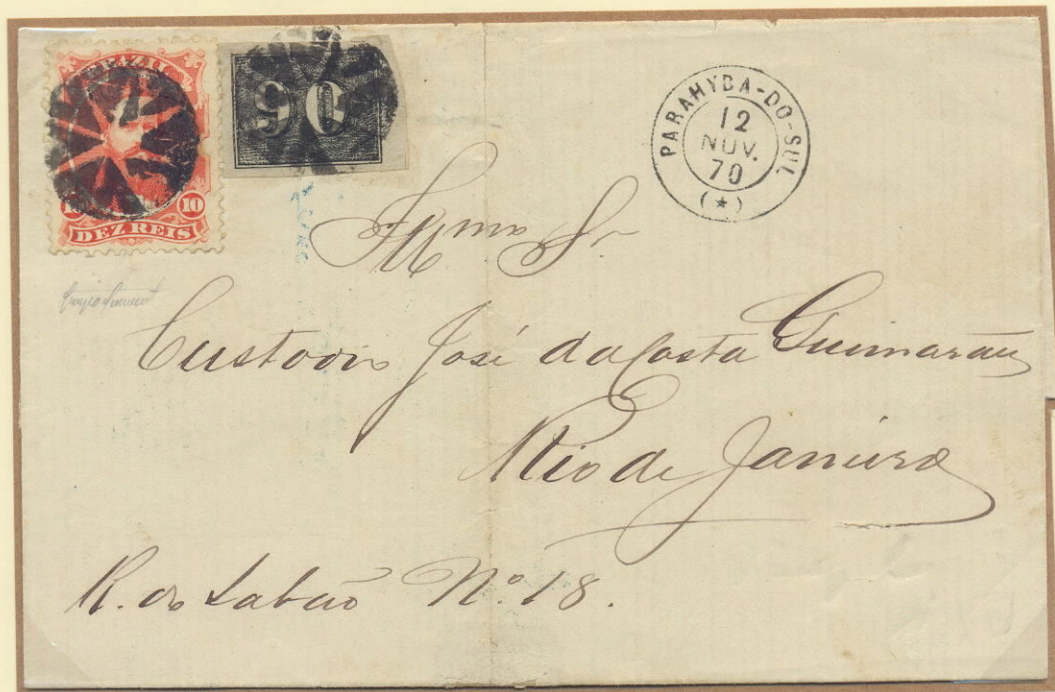 BRAZIL
10 10
DEZ REIS
90
PARAHYBA-DO-SUL
12
NOV.
70
(★)
Illmo Sr
Custodio José da Costa Guimarães
Rio de Janeiro
R. do Sabão Nº 18.